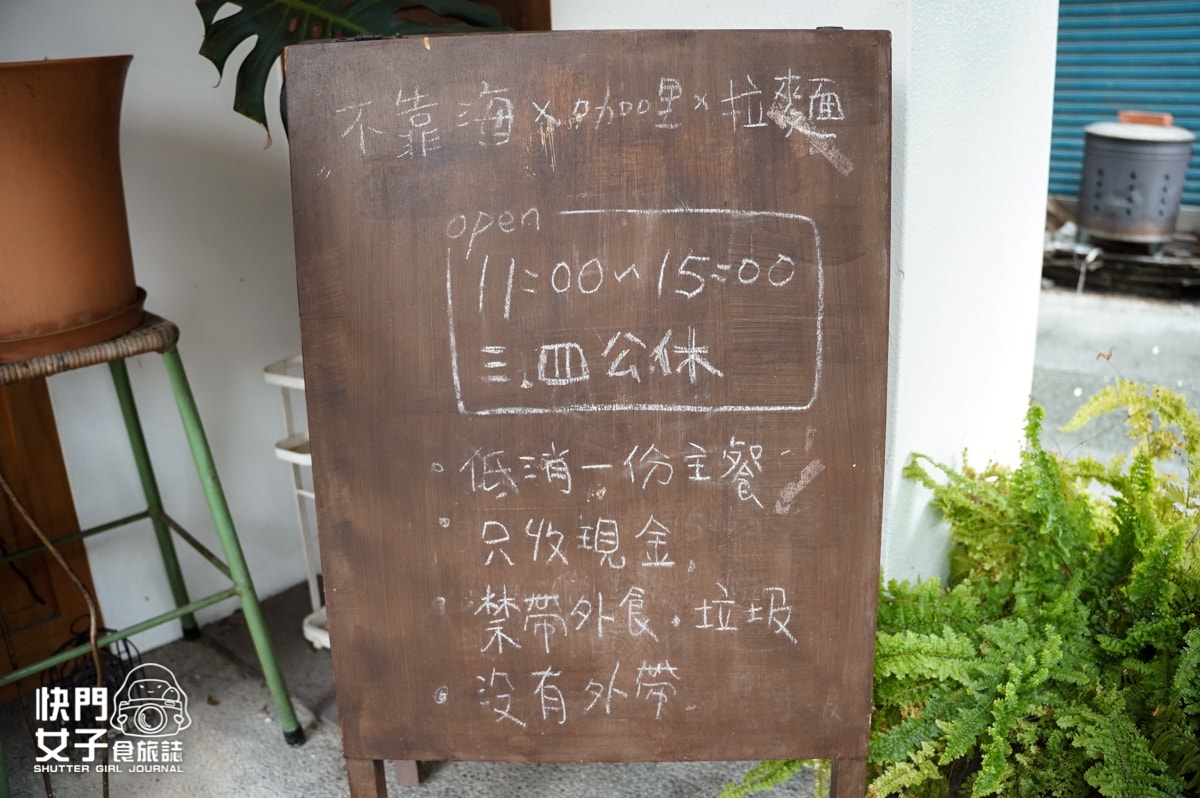 不靠海×咖哩×拉麵
open
11:00~15:00
三.四公休
• 低消一份主餐
• 只收現金.
• 禁帶外食.垃圾
• 沒有外帶.
快門
女子食旅誌
SHUTTER GIRL JOURNAL